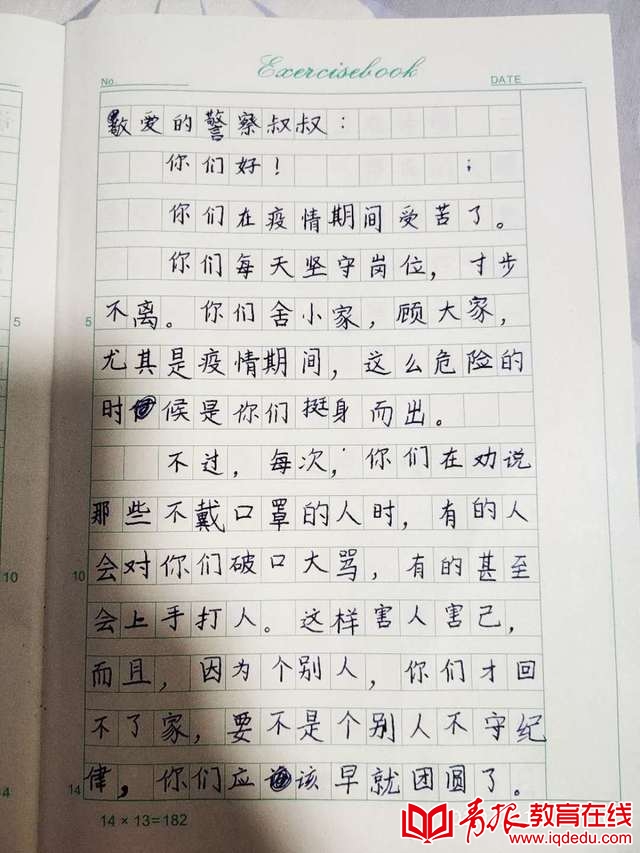 Exercisebook
No.
DATE
敬爱的警察叔叔：
你们好！ ；
你们在疫情期间受苦了。
你们每天坚守岗位，寸步
5
5
不离。你们舍小家，顾大家，
尤其是疫情期间，这么危险的
时候是你们挺身而出。
不过，每次，你们在劝说
那些不戴口罩的人时，有的人
10
10
会对你们破口大骂，有的甚至
会上手打人。这样害人害己，
而且，因为个别人，你们才回
不了家，要不是个别人不守纪
4
14
律，你们应该早就团圆了。
14×13=182
青报教育在线
www.iqdedu.com